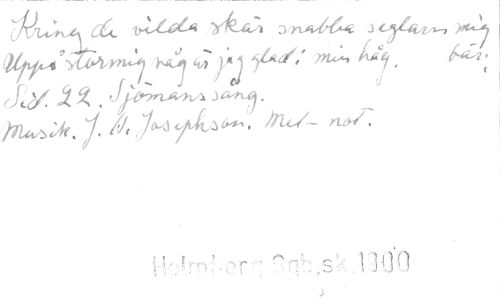 Kring de vilda skär snabba seglarn mig bär;
Uppå stormig våg är jag glad i min håg.
Sid. 22. Sjömanssång.
Musik. J. A. Josephson. Mel- not.
Holmberg Sgb.sk.1900